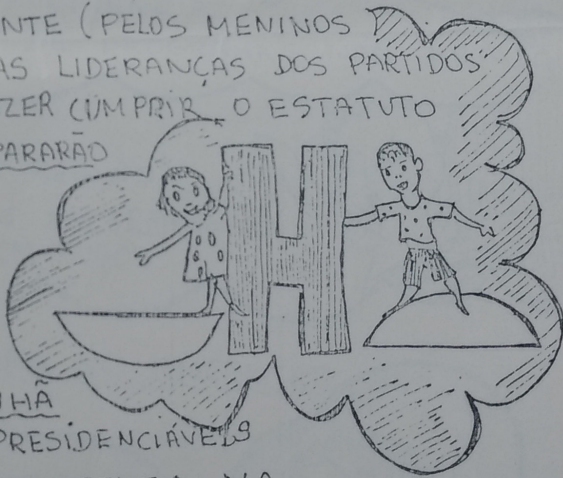 NTE (PELOS MENINOS
AS LIDERANÇAS DOS PARTIDOS
ZER CUMPRIR O ESTATUTO
PARARÃO
H
HÃ
PRESIDENCIÁVEIS